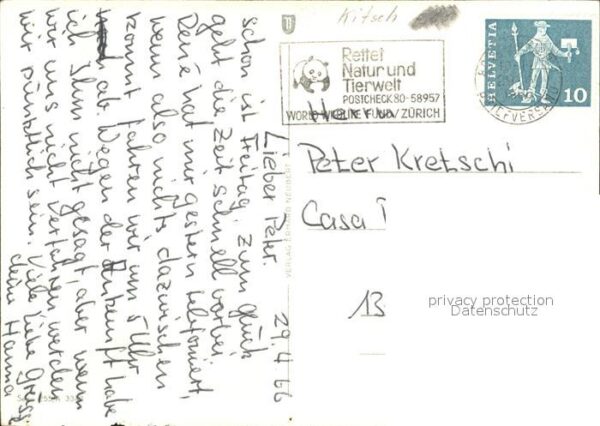 Kitsch
HELVETIA
10
BRIEFVERSAND
Rettet
Natur und
Tierwelt
POSTCHECK 80-58957
WORLD WILDLIFE FUND/ZÜRICH
Herrn
Peter Kretschi
Casa I
13
privacy protection
Datenschutz
VERLAG ERHARD NEUBERT
29.4.66
Lieber Peter.
schon ist Freitag, zum glück
geht die Zeit schnell vorbei
René hat mir gestern telefoniert,
wenn also nichts dazwischen
kommt fahren wir um 5 Uhr
ab. Wegen der Ankunft habe
ich Ihm nicht gesagt, aber wenn
wir uns nicht verfahren werden
wir pünktlich sein. Viele liebe Grüsse
deine Hanna